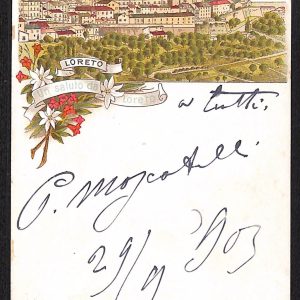 LORETO
Un saluto da Loreto
a tutti.
29/9 903